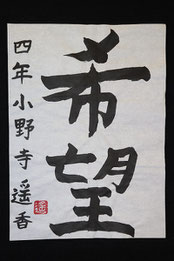 希望
四年 小野寺 遥香